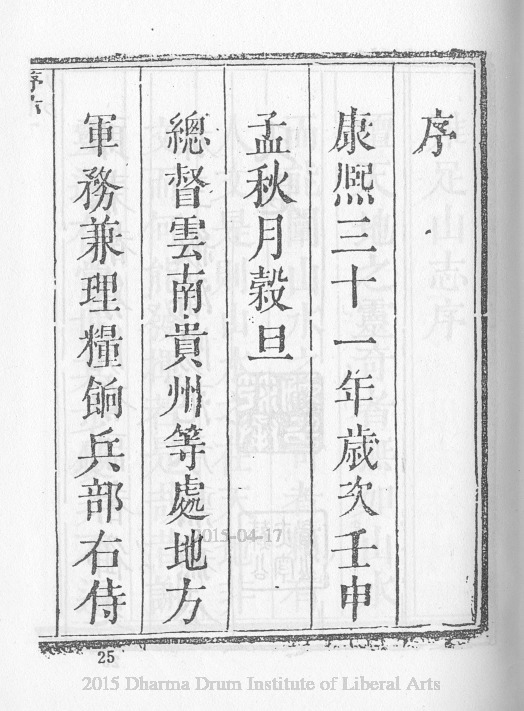 序
康熙三十一年歲次壬申
孟秋月穀旦
總督雲南貴州等處地方
軍務兼理糧餉兵部右侍
序六
2015-04-17
25
2015 Dharma Drum Institute of Liberal Arts